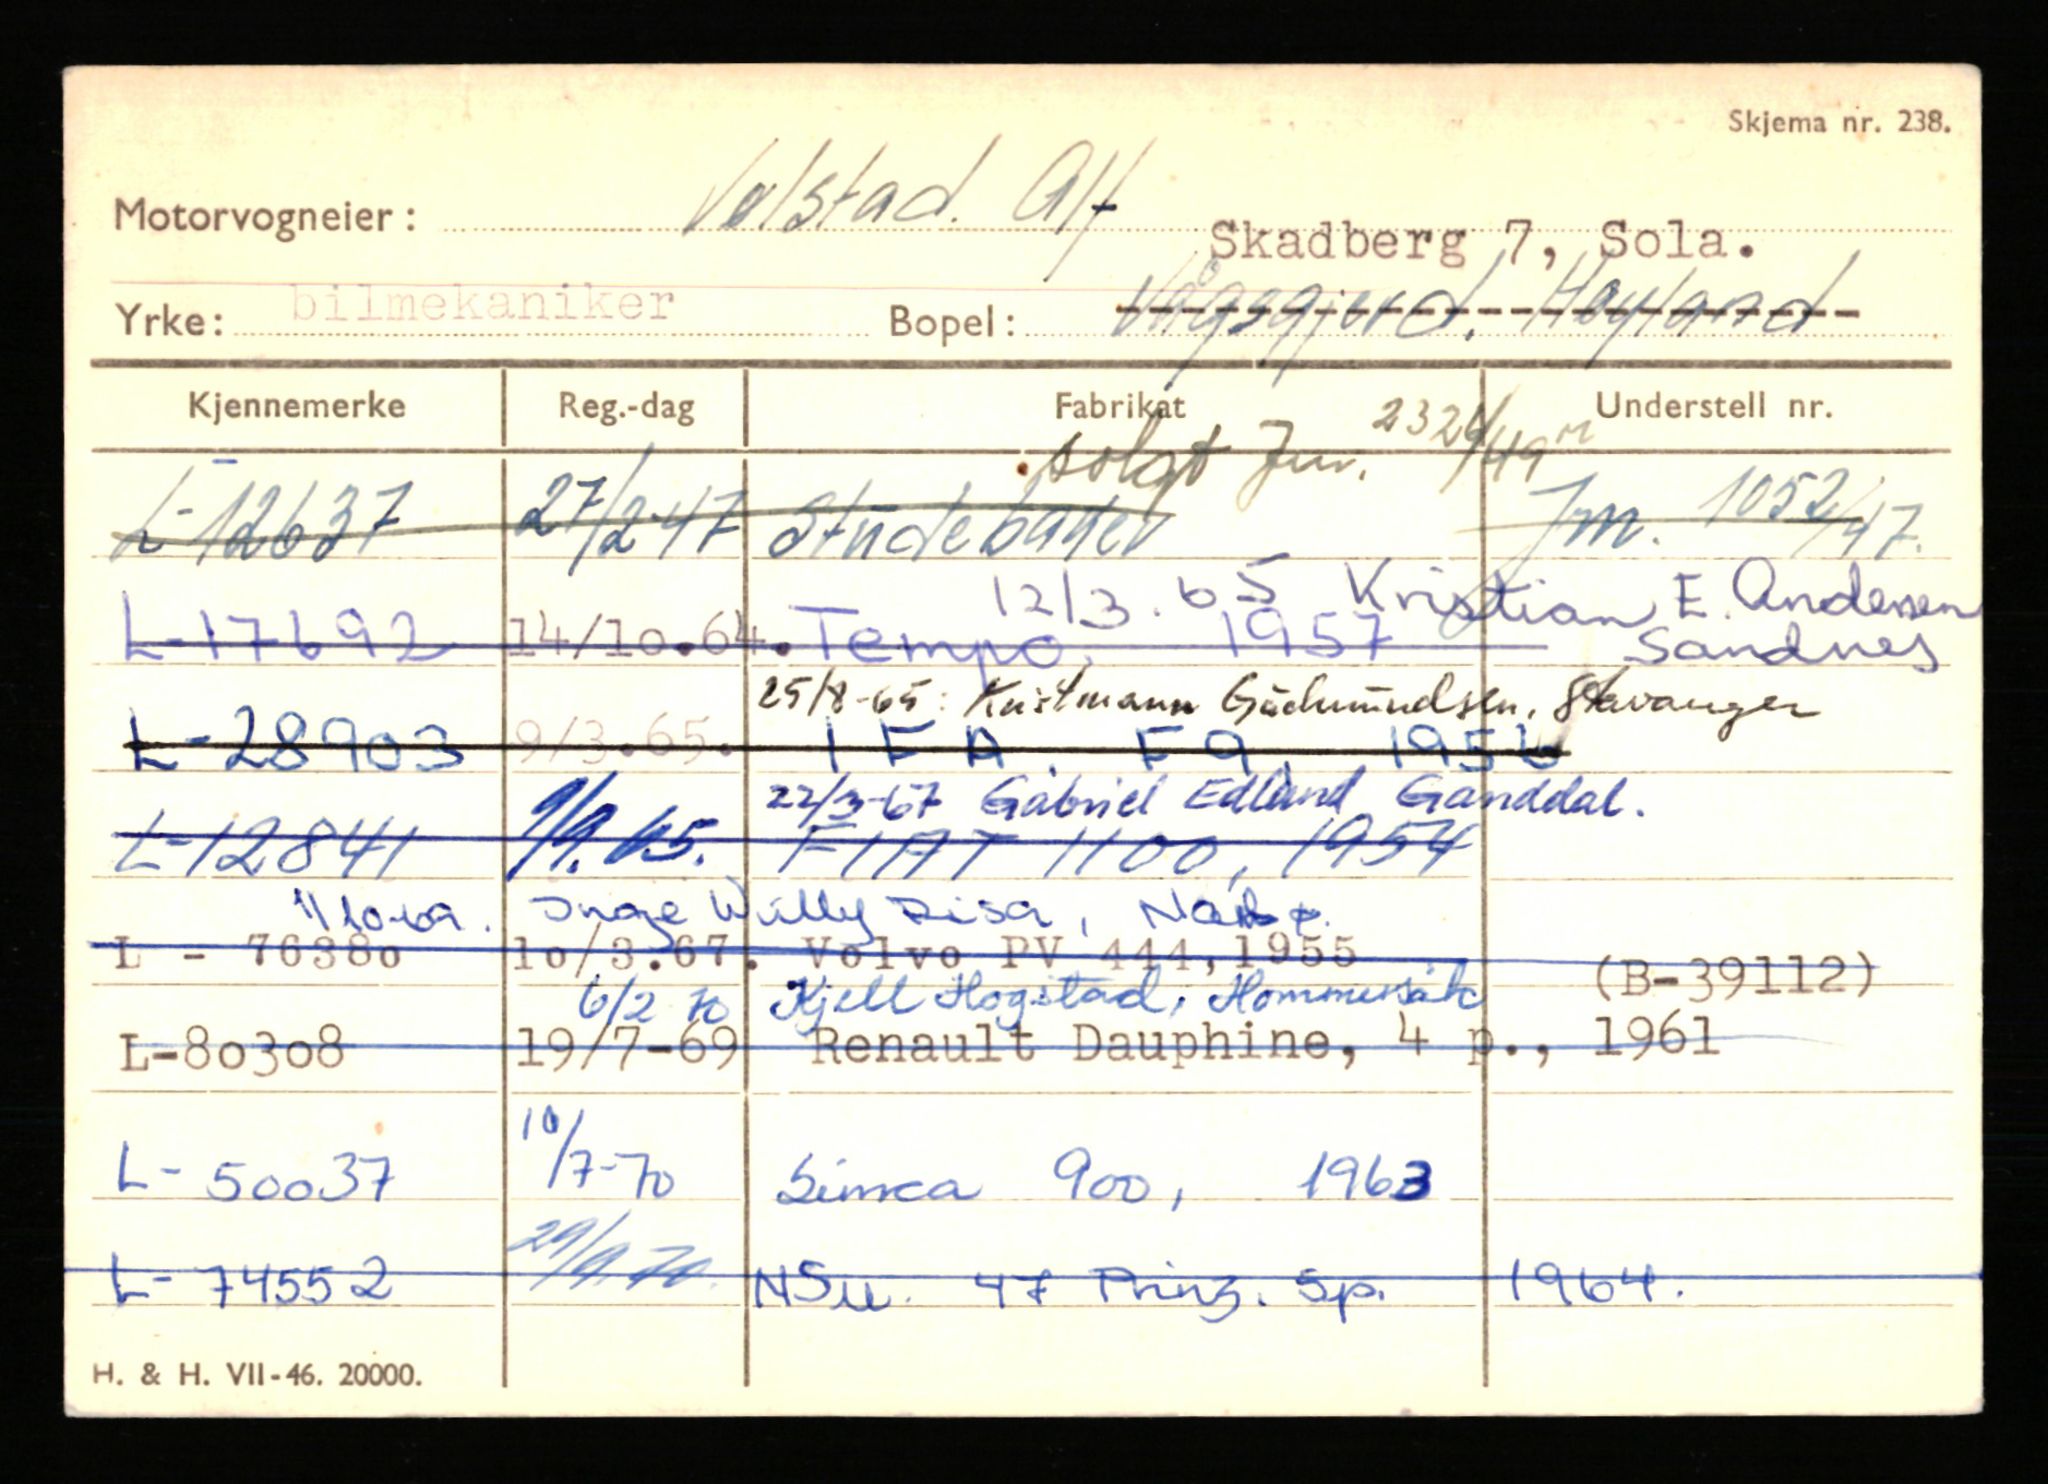 Skjema nr. 238.
Motorvogneier: Volstad. Alf
Skadberg 7, Sola.
Yrke: bilmekaniker Bopel: Vågsgjerd. Høyland
Kjennemerke Reg.-dag Fabrikat Understell nr.
solgt Jnr. 2324/49
L-12637 27/2-47 Studebaker Jm. 1052/47.
12/3.65 Kristian E. Andersen
L-17692 14/10.64. Tempo, 1957 Sandnes
25/8-65: Kristmann Gudmundsen, Stavanger
L-28903 9/3.65. IFA. F9. 1956
22/3-67 Gabriel Edland Ganddal.
L-12841 9/9.65. FIAT 1100, 1954
1/10-69. Inge Willy Risa, Nærbø.
L - 76380 10/3.67. Volvo PV 444,1955 (B-39112)
6/2 70 Kjell Hogstad, Hommersåk
L-80308 19/7-69 Renault Dauphine, 4 p., 1961
L- 50037 10/7-70 Simca 900, 1963
L- 74552 29/9.70. NSU. 47 Prinz. Sp. 1964.
H. & H. VII-46. 20000.